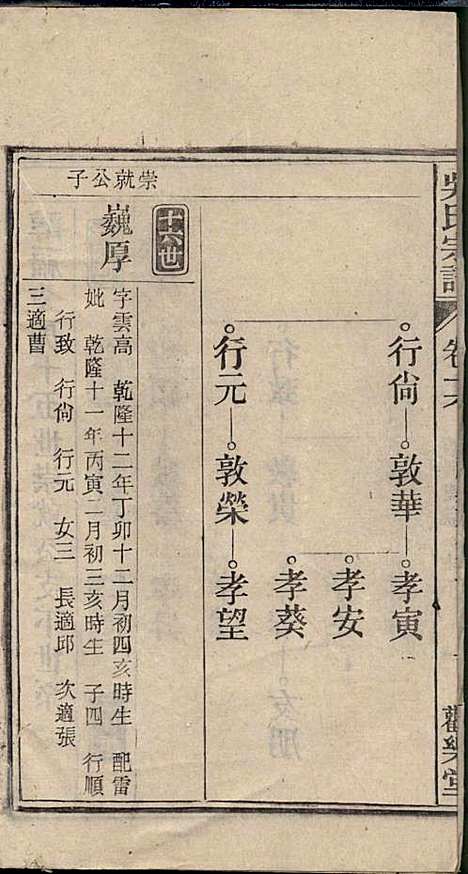 吳氏宗譜
卷十六
觀樂堂
行尙 敦華 孝寅
孝安
孝葵
行元 敦榮 孝望
十六世
崇就公子
巍厚
字雲高 乾隆十二年丁卯十二月初四亥時生 配雷
妣 乾隆十一年丙寅二月初三亥時生 子四 行順
行致 行尙 行元 女三 長適邱 次適張
三適曹